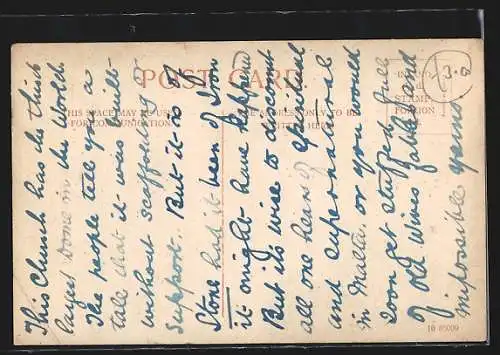 POST CARD
THIS SPACE MAY BE USED
FOR COMMUNICATION
THE ADDRESS ONLY TO BE
WRITTEN HERE
STAMP
FOREIGN
This Church has the third
largest Dome in the World.
The people tell you a
tale that it was built
without scaffolding or
support. But it is of
Stone had it been of Iron
it might have happened
But its wise to discount
all one hears of Spiritual
and supernatural
in Malta. or you would
soon get stuffed full
of Old Wives fables and
impossible yarns